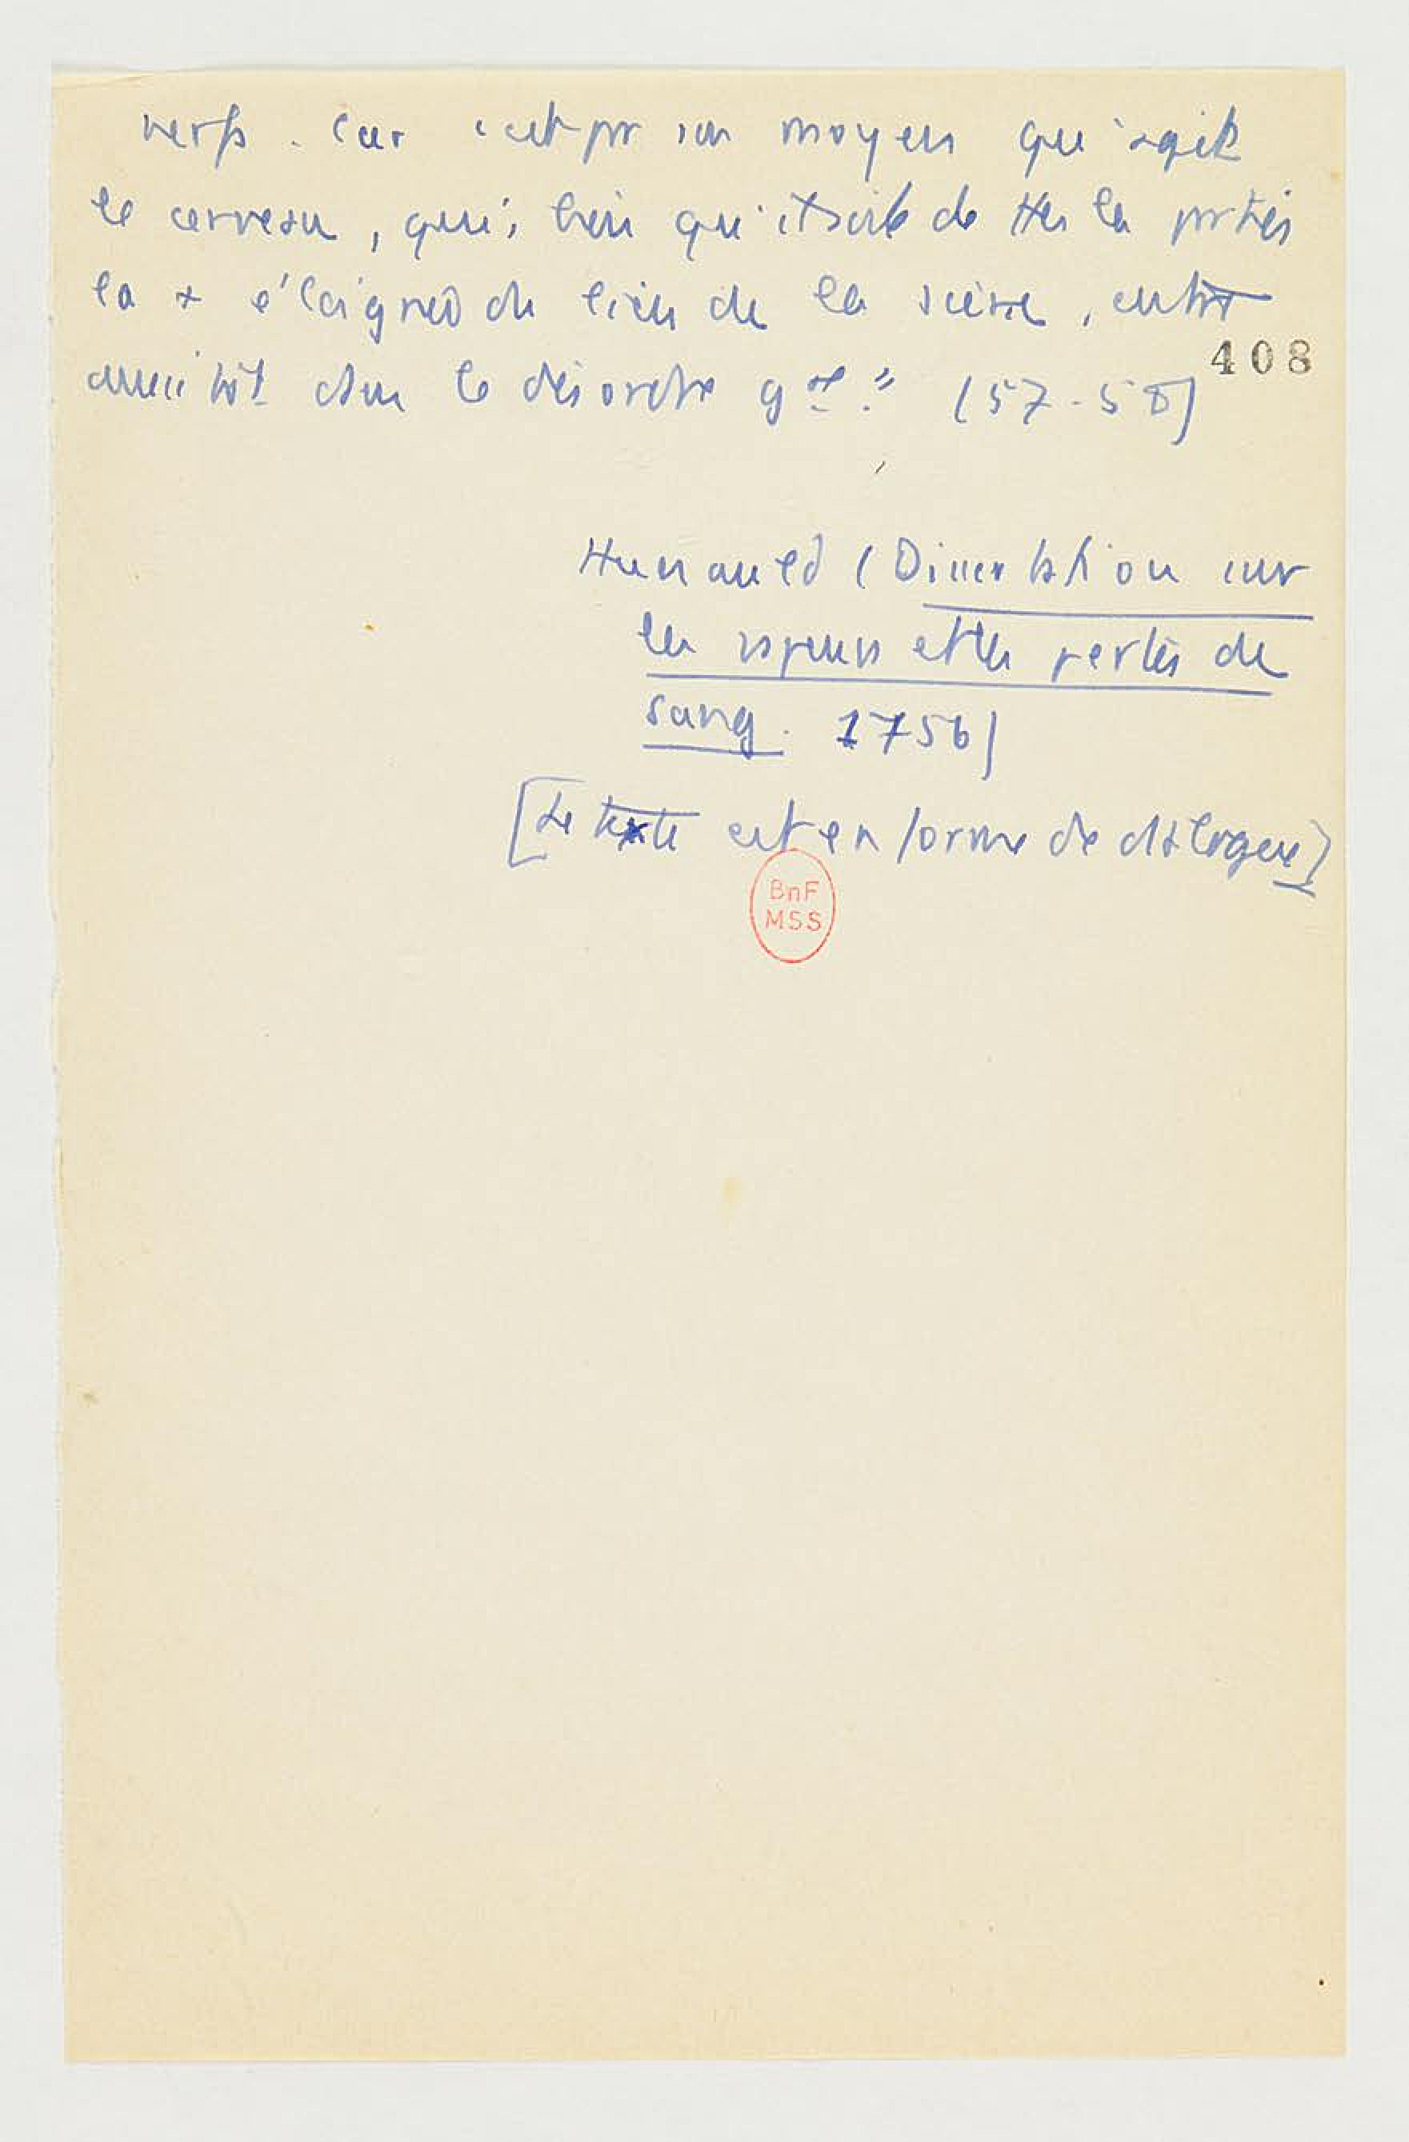 nerfs. Car c'est par son moyen qu'agit
le cerveau, qui, bien qu'il soit de ttes les parties
la + éloignée du lieu de la scène, entre
aussitôt dans le désordre gal." (57-58)
408
Hunauld (Dissertation sur
les vapeurs et les pertes de
sang. 1756)
[Le texte est en forme de dialogue]
BnF
MSS